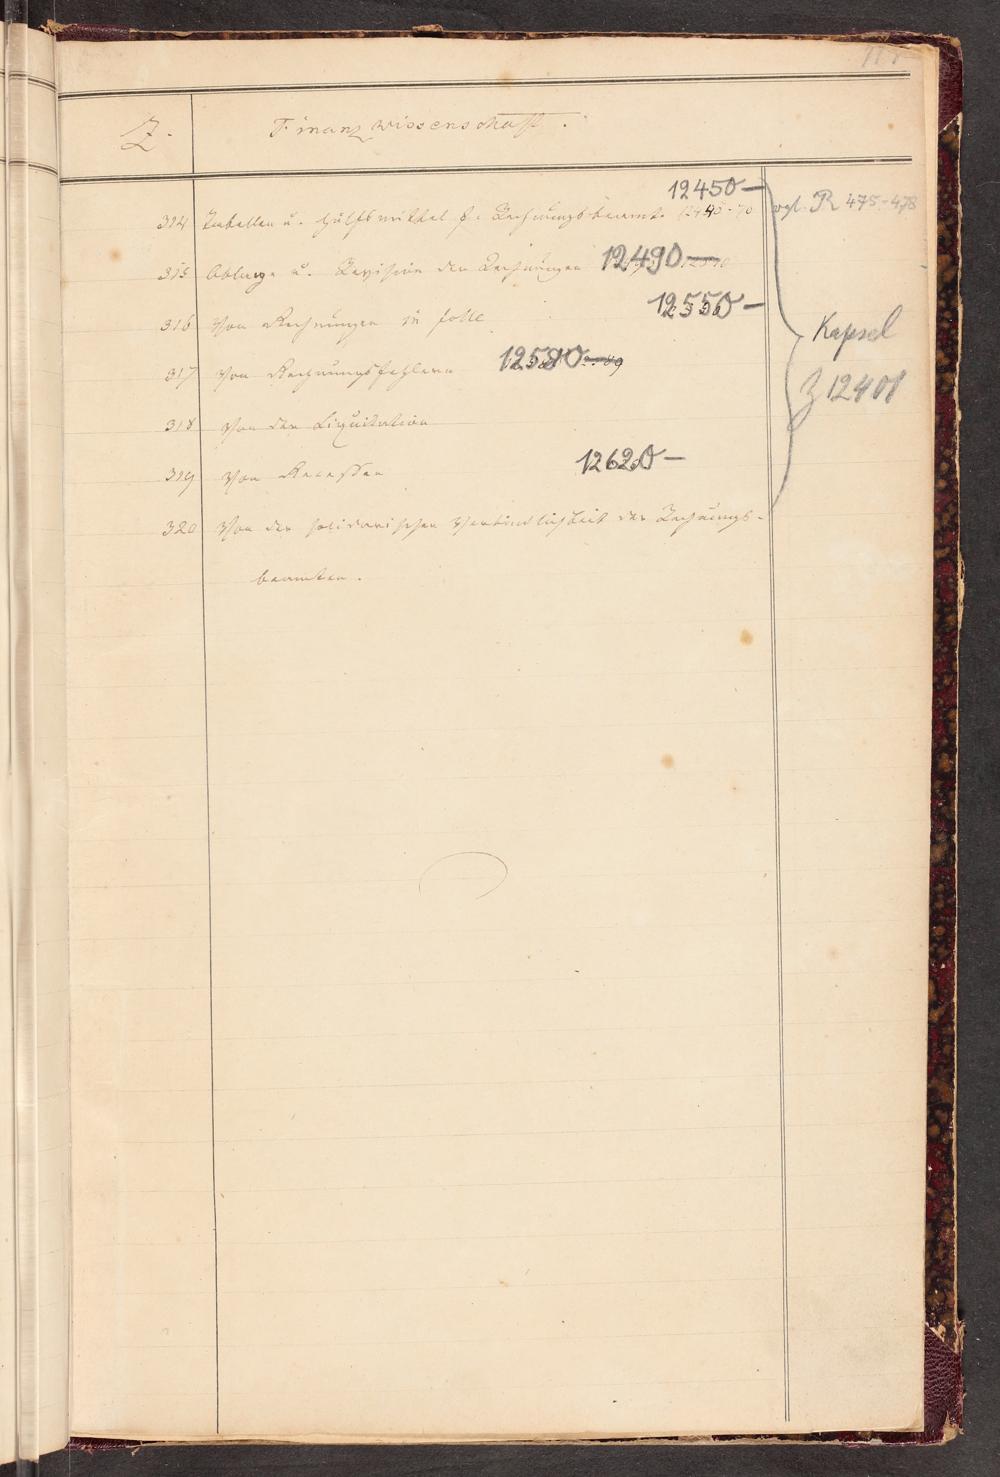 Z.
Finanzwissenschaft.
12450 —
314 Tabellen u. Hülfsmittel f. Rechnungsbeamte
vgl. R 475-478
315 Ablage u. Revision der Rechnungen 12490 —
12550 —
316 Von Rechnungen in folle
Kapsel
Z 12401
317 Von Rechnungsfehlern 12580 —
318 Von der Liquidation
319 Von Recessen 12620 —
320 Von der solidarischen Verbindlichkeit der Rechnungs-
beamten.